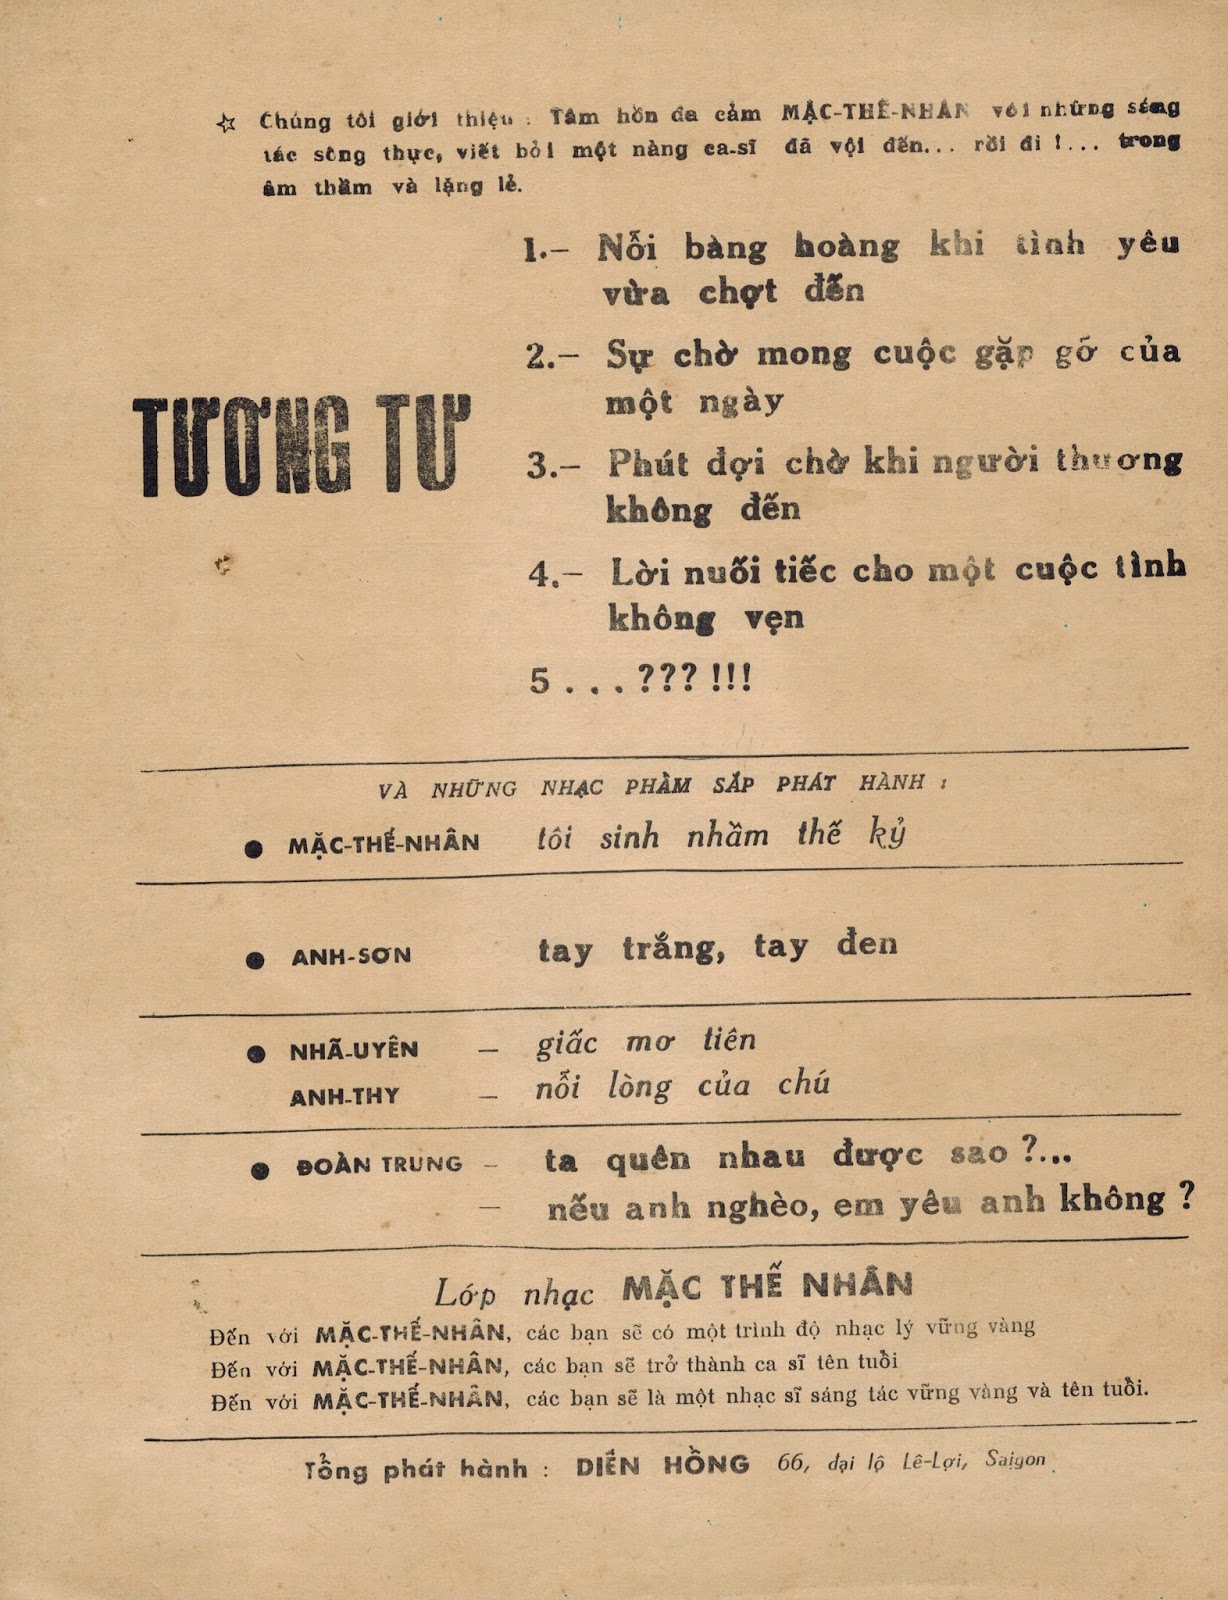 ☆ Chúng tôi giới thiệu : Tâm hồn đa cảm MẶC-THẾ-NHÂN với những sáng
tác sống thực, viết bởi một nàng ca-sĩ đã vội đến... rồi đi !... trong
âm thầm và lặng lẻ.
TƯƠNG TƯ
1.— Nỗi bàng hoàng khi tình yêu
vừa chợt đến
2.— Sự chờ mong cuộc gặp gỡ của
một ngày
3.— Phút đợi chờ khi người thương
không đến
4.— Lời nuối tiếc cho một cuộc tình
không vẹn
5 . . . ??? !!!
VÀ NHỮNG NHẠC PHẨM SẮP PHÁT HÀNH :
● MẶC-THẾ-NHÂN tôi sinh nhầm thế kỷ
● ANH-SƠN tay trắng, tay đen
● NHÃ-UYÊN — giấc mơ tiên
ANH-THY — nỗi lòng của chú
● ĐOÀN TRUNG — ta quên nhau được sao ?...
— nếu anh nghèo, em yêu anh không ?
Lớp nhạc MẶC THẾ NHÂN
Đến với MẶC-THẾ-NHÂN, các bạn sẽ có một trình độ nhạc lý vững vàng
Đến với MẶC-THẾ-NHÂN, các bạn sẽ trở thành ca sĩ tên tuổi
Đến với MẶC-THẾ-NHÂN, các bạn sẽ là một nhạc sĩ sáng tác vững vàng và tên tuổi.
Tổng phát hành : DIÊN HỒNG 66, đại lộ Lê-Lợi, Saigon